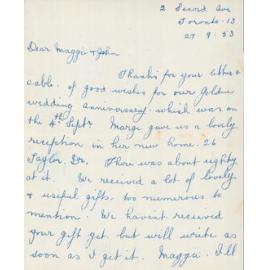 2 Secord Ave
Toronto. 13
27. 9. 53
Dear Maggie & John
Thanks for your letter &
cable, of good wishes for our Golden
wedding anniversary. which was on
the 4th Sept. Marge gave us a lovely
reception in her new home. 26
Taylor. Dr. There was about eighty
at it. We received a lot of lovely
& useful gifts. too numerous to
mention. We havent received
your gift yet. but will write as
soon as I get it. Maggie. I'll